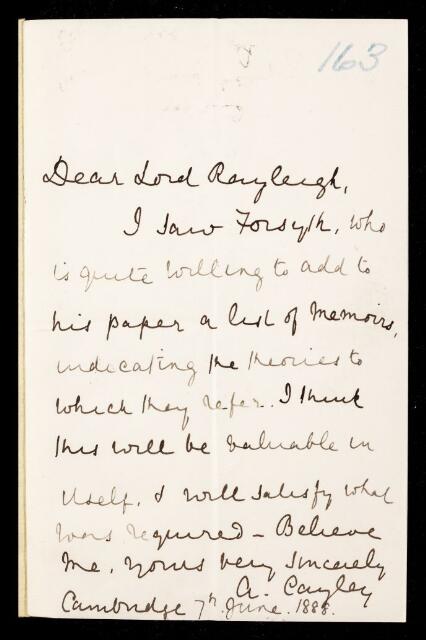 163
Dear Lord Rayleigh,
I saw Forsyth, who
is quite willing to add to
his paper a list of Memoirs,
indicating the theories to
which they refer. I think
this will be valuable in
itself, & will satisfy what
was required – Believe
me, yours very sincerely
A. Cayley
Cambridge 7th June. 1888.